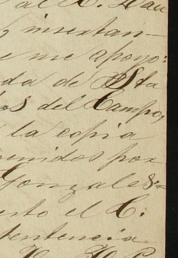 al C.
y insertan-
e me apoyo:
da de Sta
os del Campo,
la copia
unidos por
Gonzales
nto el C.
sentencia